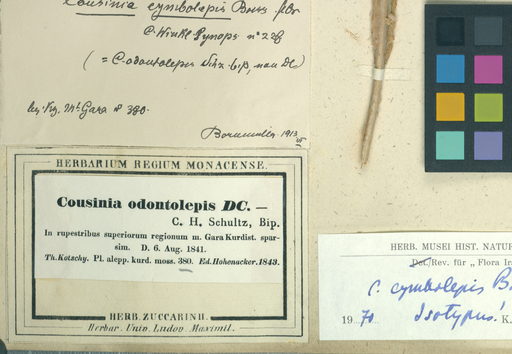 Cousinia cymbolepis Boiss.
C. Winkl. Synops. nº 228
(= C. odontolepis Schz. bip., non DC)
Mt. Gara nº 380.
Bornmüller 1913
HERBARIUM REGIUM MONACENSE.
Cousinia odontolepis DC. —
C. H. Schultz, Bip.
In rupestribus superiorum regionum m. Gara Kurdist. spar-
sim. D. 6. Aug. 1841.
Th. Kotschy. Pl. alepp. kurd. moss. 380. Ed. Hohenacker. 1843.
HERB. ZUCCARINII.
Herbar. Univ. Ludov. Maximil.
HERB. MUSEI HIST. NATUR
Det./Rev. für „ Flora Ir
C. cymbolepis B
1970 Isotypus! K.